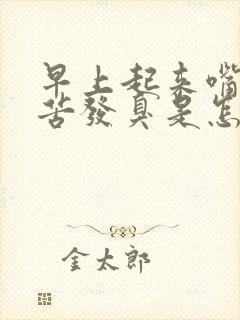 早上起来嘴
苦發臭是怎
金太郎